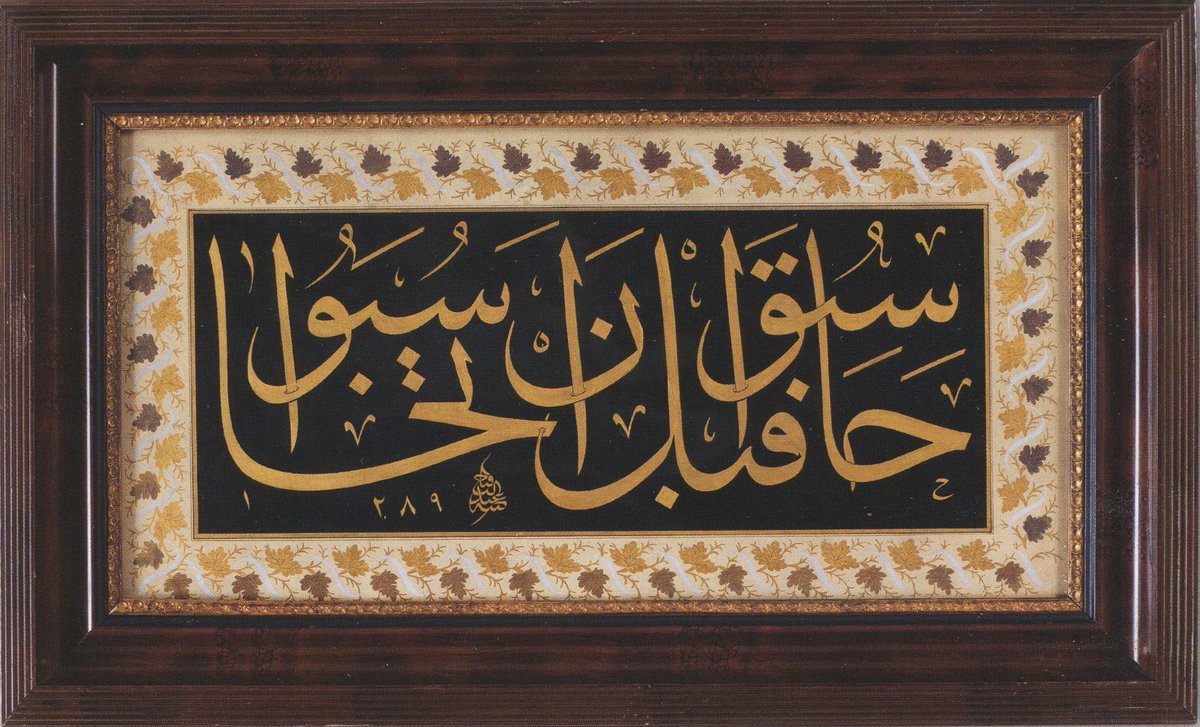 حاسبوا قبل ان تحاسبوا
١٢٨٩